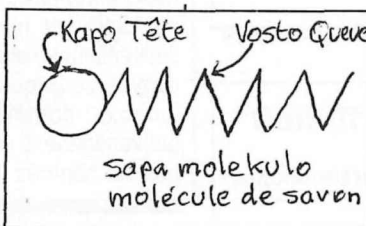 Kapo Tête
Vosto Queue
sapa molekulo
molécule de savon